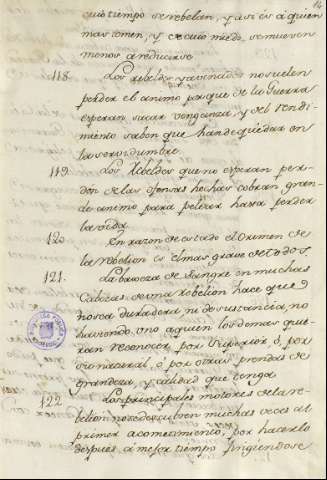 14
que tiempo se rebelan, y assi es à quien
mas temen, y de cuio miedo se mueven
menos a reducirse
118. Los rebeldes y avenados no suelen
perder el animo porque de la Guerra
esperan sacar venganza, y del rendi-
miento saben que han de quedar en
la servidumbre.
119. Los Rebeldes que no esperan per-
don de las ofensas hechas cobran gran-
de animo para pelear hasta perder
la vida.
120. En razon de estado el Crimen de
la rebelion es el mas grave de todos.
121. La baveza de Sangre en muchas
Cabezas de una rebelion hace que
no sea duradera, ni de sustancia, no
haviendo uno a quien los demas quie-
ran reconocer, por Superior, ó, por
su natural, ó por otras prendas de
grandeza, y calidad que tenga
122. Los principales motores de la re-
belion no se descubren muchas veces al
primer acometimiento, por hacerlo
despues, a mejor tiempo, fingiendose